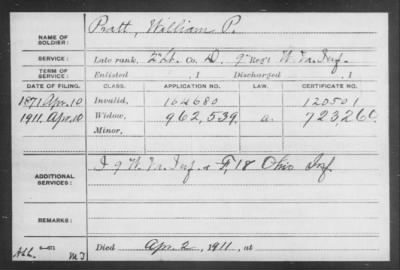 NAME OF SOLDIER: Pratt, William P.
SERVICE: Late rank, 2" Lt. Co. D, 9" Reg't W. Va. Inf.
TERM OF SERVICE: Enlisted , 1 Discharged , 1
DATE OF FILING. CLASS. APPLICATION NO. LAW. CERTIFICATE NO.
1871 Apr. 10 Invalid, 162680 120501
1911, Apr. 10 Widow, 962,539 a. 723,260
Minor,
ADDITIONAL SERVICES: I 9 W. Va. Inf. & F, 18 Ohio Inf.
REMARKS:
Died Apr. 2, 1911, at